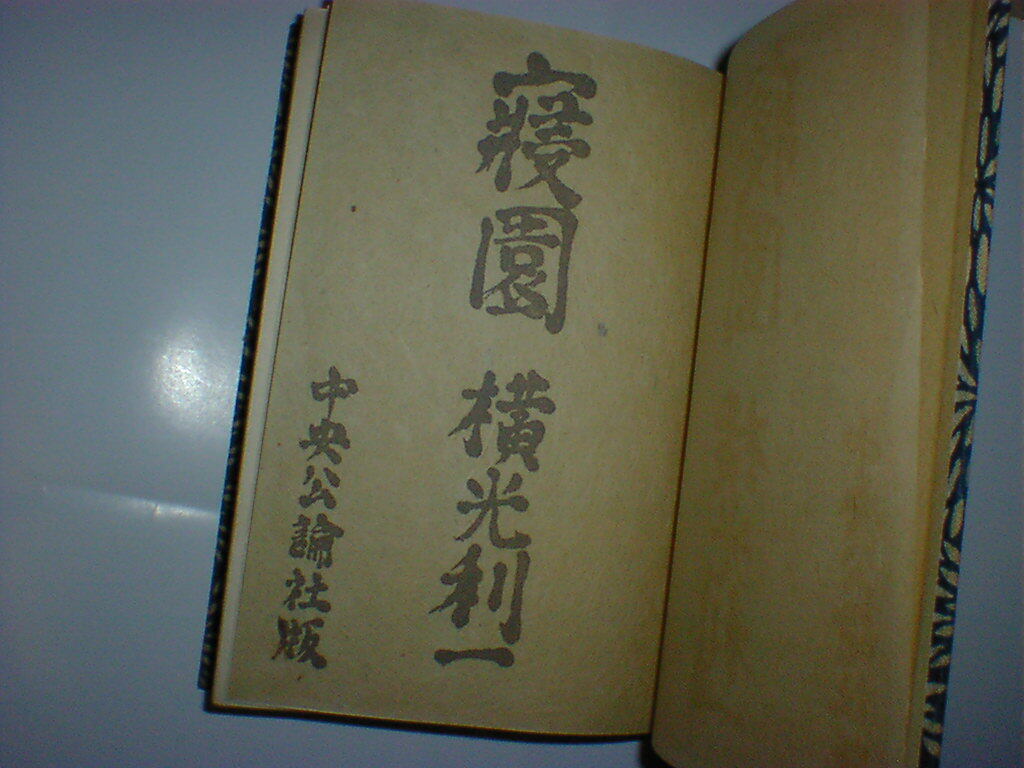 寝園 横光利一
中央公論社版